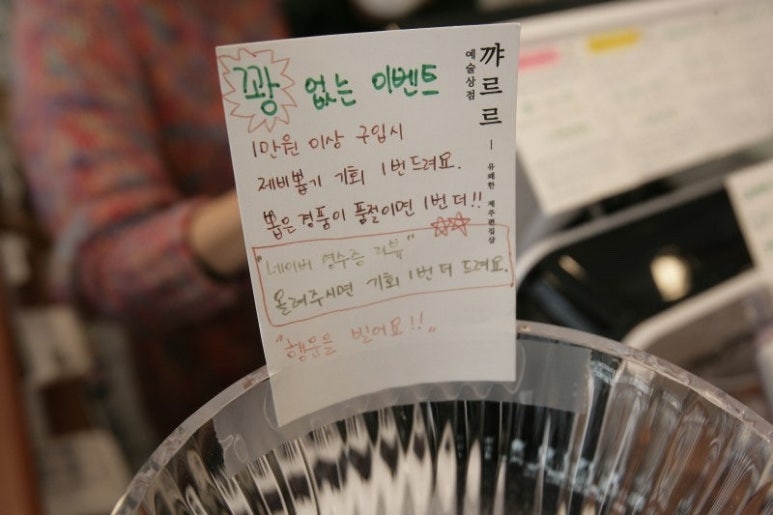 꽝 없는 이벤트
1만원 이상 구입시
제비뽑기 기회 1번 드려요.
뽑은 경품이 품절이면 1번 더!!
"네이버 영수증 리뷰"
올려주시면 기회 1번 더 드려요.
"행운을 빌어요!!"
꺄르르
예술상점
유쾌한 제주편집샵